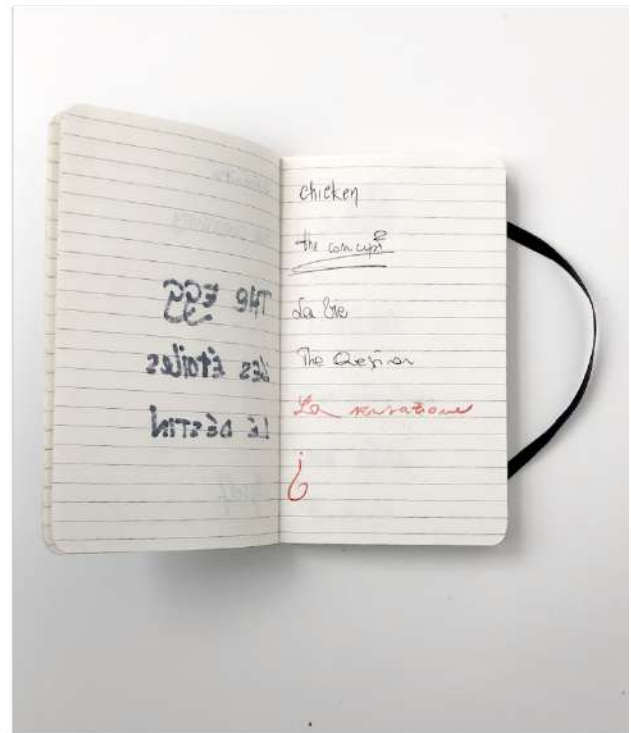 THE EGG
LES ÉTOILES
LE DESTIN
chicken
the concept
La vie
The Design
La sensazione
¿